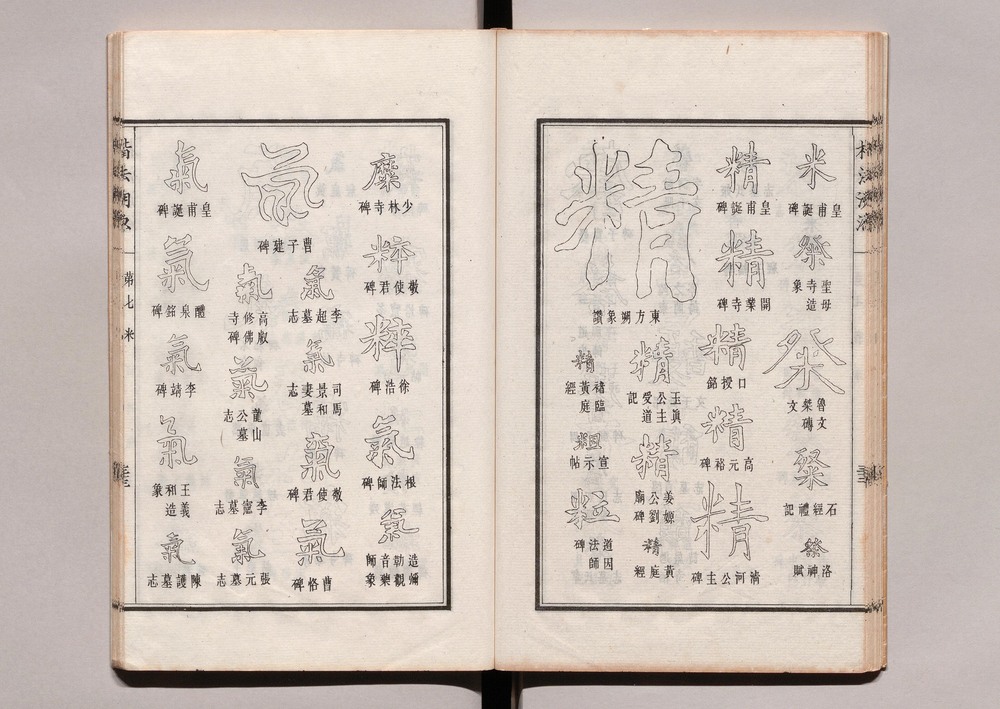 米
皇甫誕碑
粲
聖母寺造象
粲
粲
石經禮記
粲
洛神賦
精
皇甫誕碑
精
開業寺碑
精
口授銘
精
高元裕碑
精
淸河公主碑
精
東方朔象讚
精
玉眞公主受道記
精
姜嫄公劉廟碑
精
黃庭經
精
褚臨黃庭經
粗
宣示帖
粒
道因法師碑
糜
少林寺碑
粹
敬使君碑
粹
徐浩碑
氣
根法師碑
氣
造彌勒觀音藥師象
氣
曹子建碑
氣
李超墓志
氣
司馬景和妻墓志
氣
敬使君碑
氣
曹恪碑
氣
高叡修佛寺碑
氣
龍山公墓志
氣
李寔墓志
氣
張元墓志
氣
皇甫誕碑
氣
醴泉銘碑
氣
李靖碑
氣
王義和造象
氣
陳護墓志
第七 米